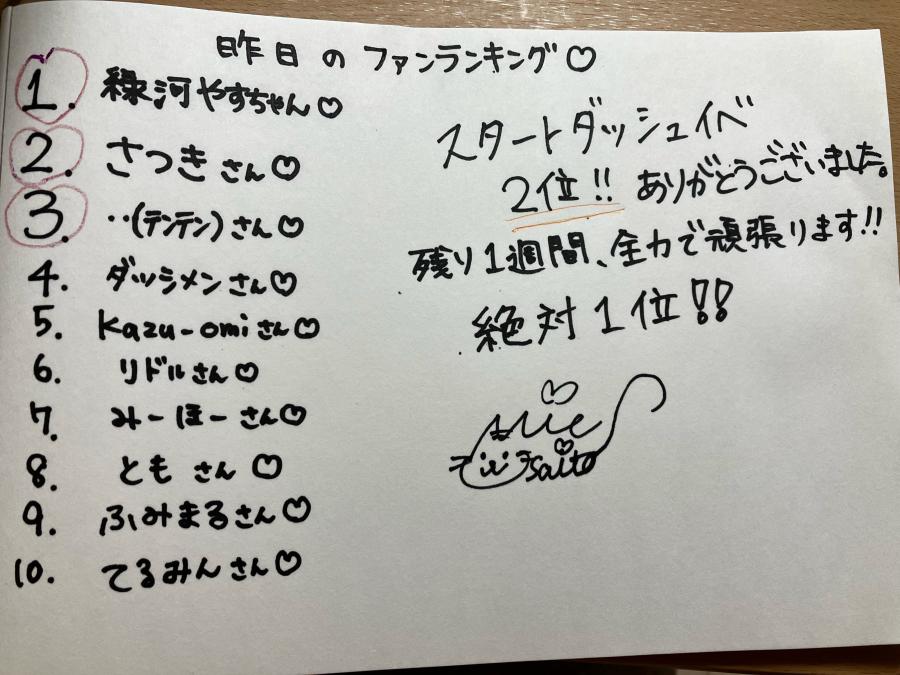 昨日のファンランキング♡
1. 緑河やすちゃん♡
2. さつきさん♡
3. ‥(テンテン)さん♡
4. ダッシメンさん♡
5. Kazu-omiさん♡
6. リドルさん♡
7. みーほーさん♡
8. ともさん♡
9. ふみまるさん♡
10. てるみんさん♡
スタートダッシュイベ
2位!! ありがとうございました。
残り1週間、全力で頑張ります!!
絶対1位!!
saito